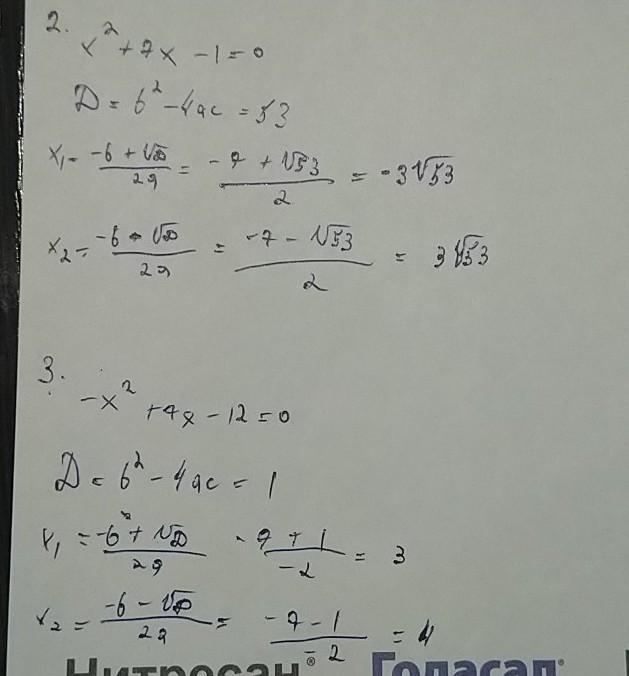 2.
x² + 7x - 1 = 0
D = b² - 4ac = 53
x₁ = (-b + √D)/(2a) = (-7 + √53)/2 = -3√53
x₂ = (-b - √D)/(2a) = (-7 - √53)/2 = 3√53
3.
-x² + 7x - 12 = 0
D = b² - 4ac = 1
x₁ = (-b + √D)/(2a) (-7 + 1)/(-2) = 3
x₂ = (-b - √D)/(2a) = (-7 - 1)/(-2) = 4
Нитросан® Голасал®